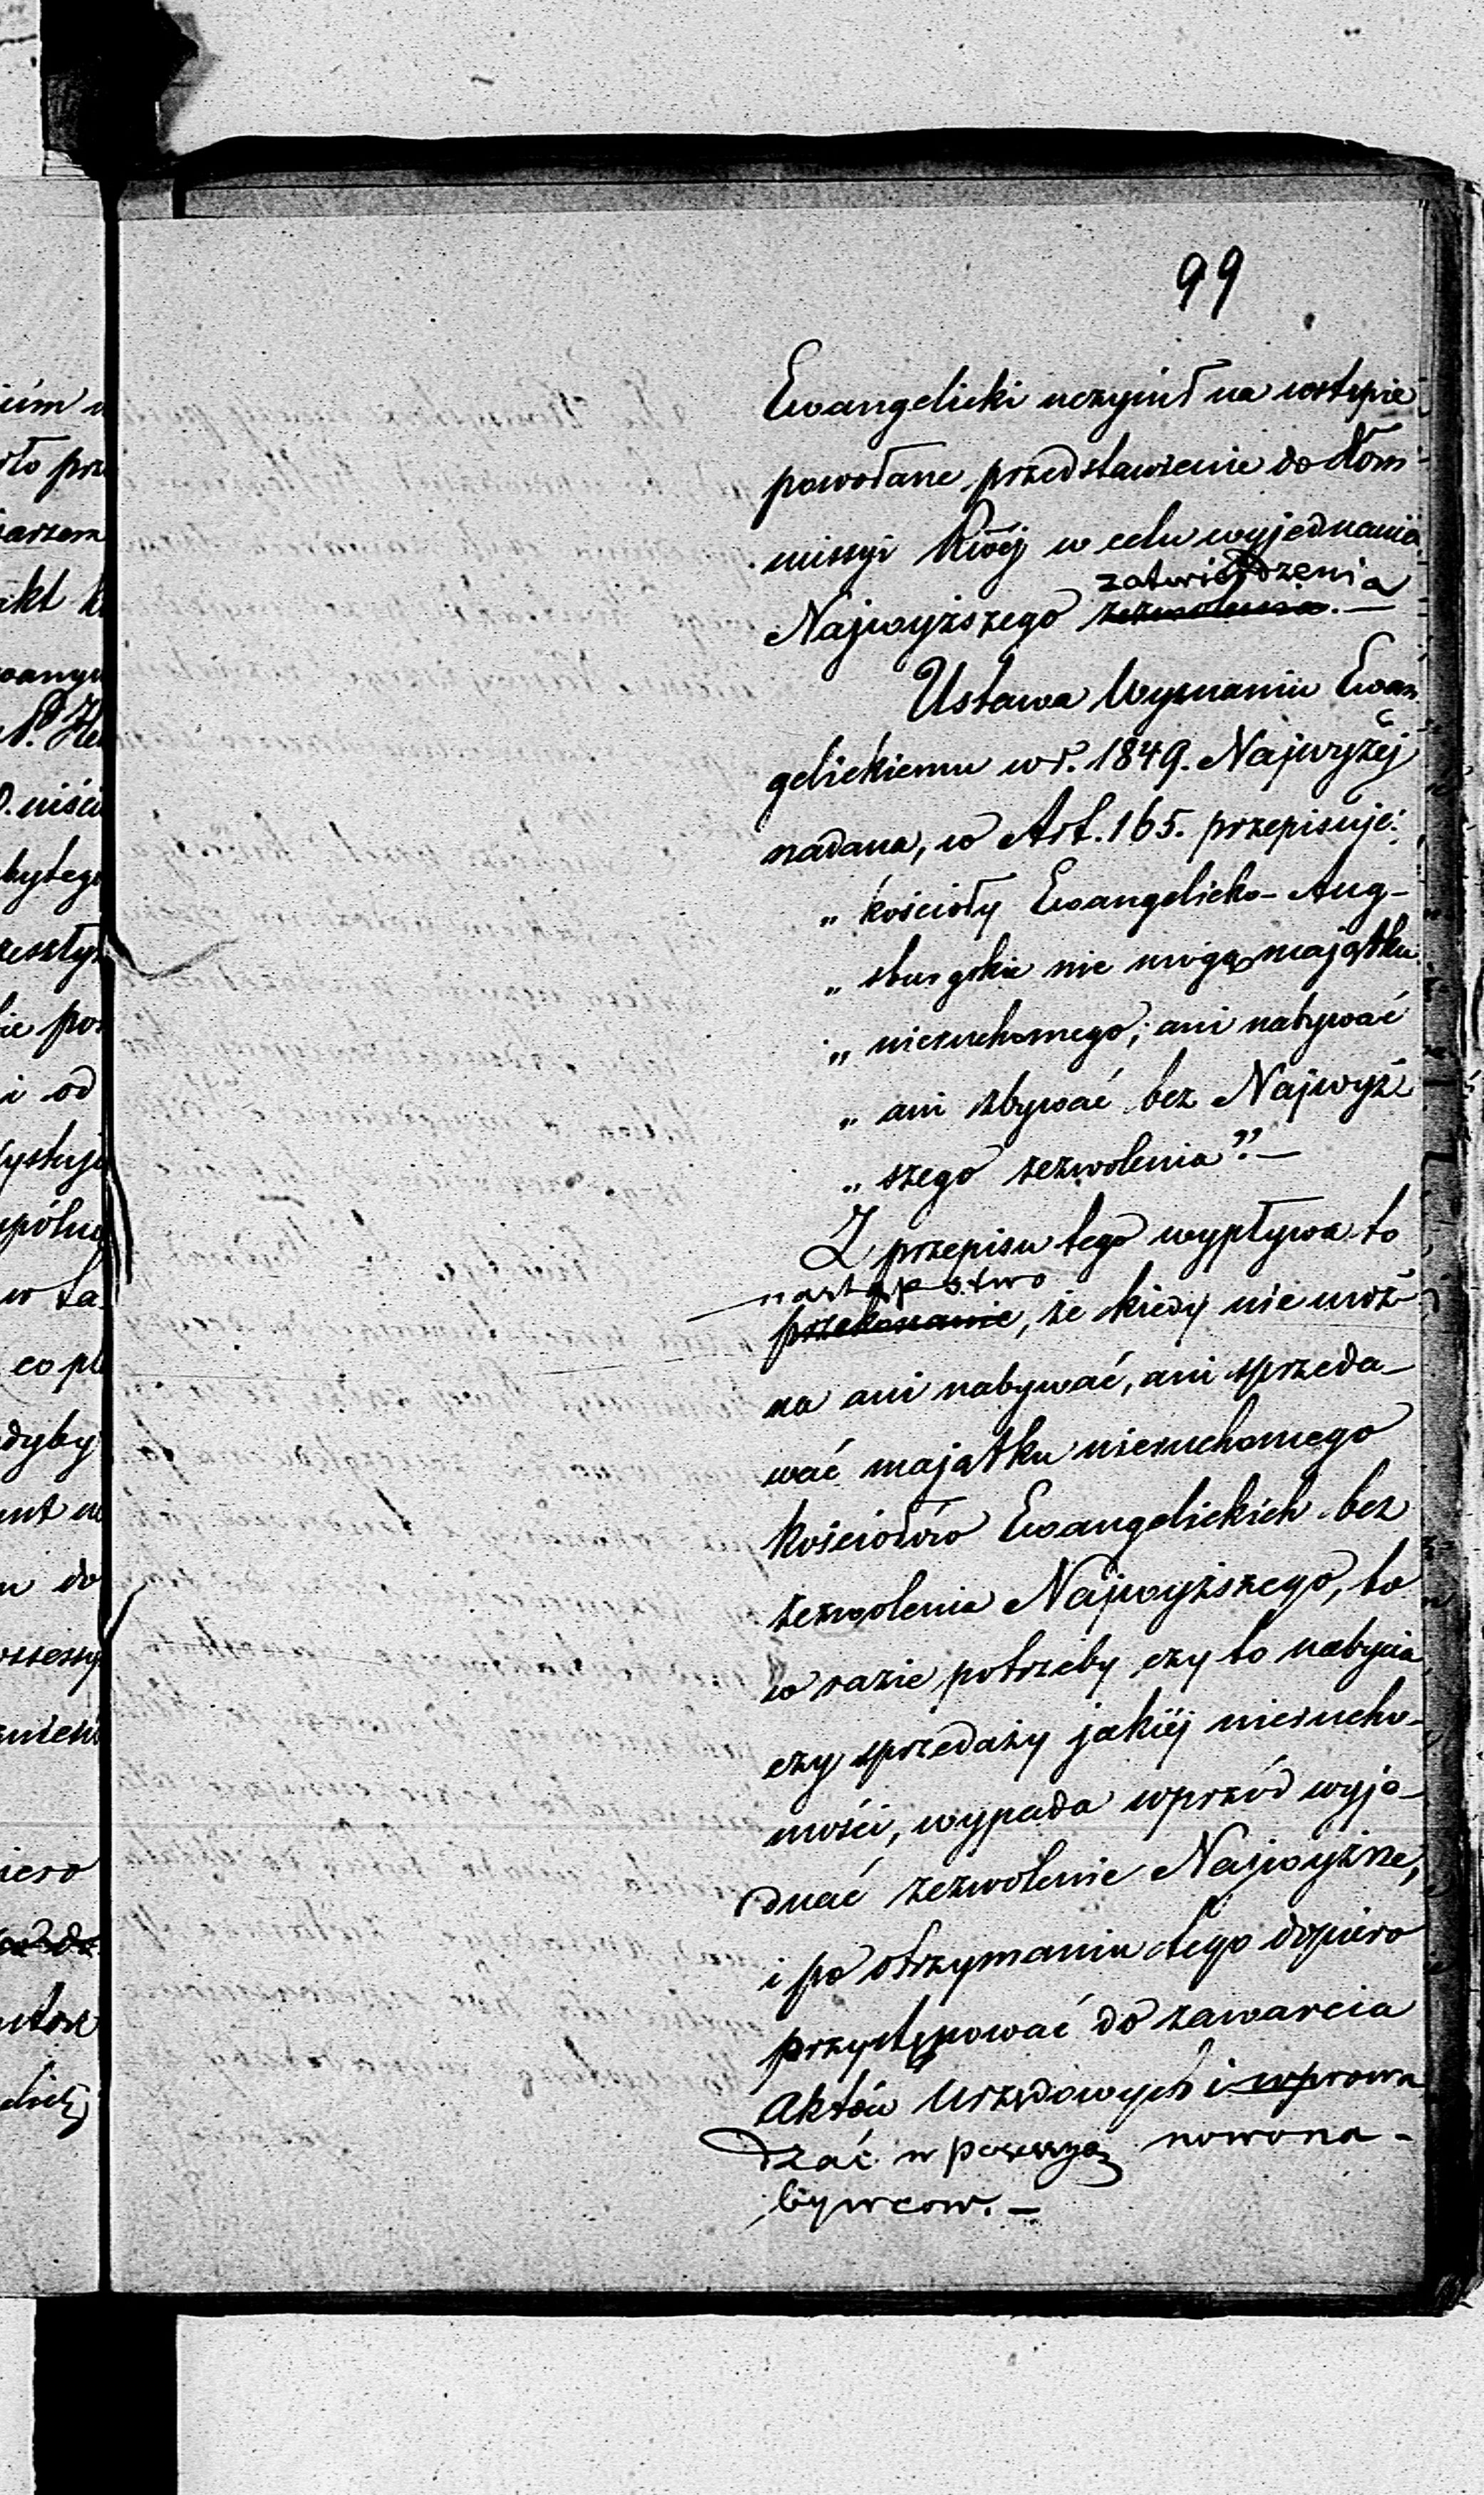 99
Ewangelicki uczynił na wstępie
powołane przedstawienie do Kom-
missyi Rwéj w celu wyjednania
zatwierdzenia
Najwyższego zezwolenia. —
Ustawa Wyznaniu Ewan
gelickiemu w r. 1849. Najwyżéj
nadana, w Art. 165. przepisuje:
„ kościoły Ewangelicko-Aug-
„ sburgskie nie mogą majątku
„ nieruchomego, ani nabywać
„ ani zbywać bez Najwyż-
„ szego zezwolenia”. —
Z przepisu tego wypływa to
następstwo
przekonanie, że kiedy nie moż-
na ani nabywać, ani sprzeda-
wać majątku nieruchomego
Kościołów Ewangelickich bez
zezwolenia Najwyższego, to
w razie potrzeby czy to nabycia
czy sprzedaży jakiéj nierucho-
mości, wypada wprzód wyje-
dnać zezwolenie Najwyższe,
i po otrzymaniu tego dopiero
przystępować do zawarcia
Aktów Urzędowych i wprowa
dzać w posessyą nowona-
bywcow. —